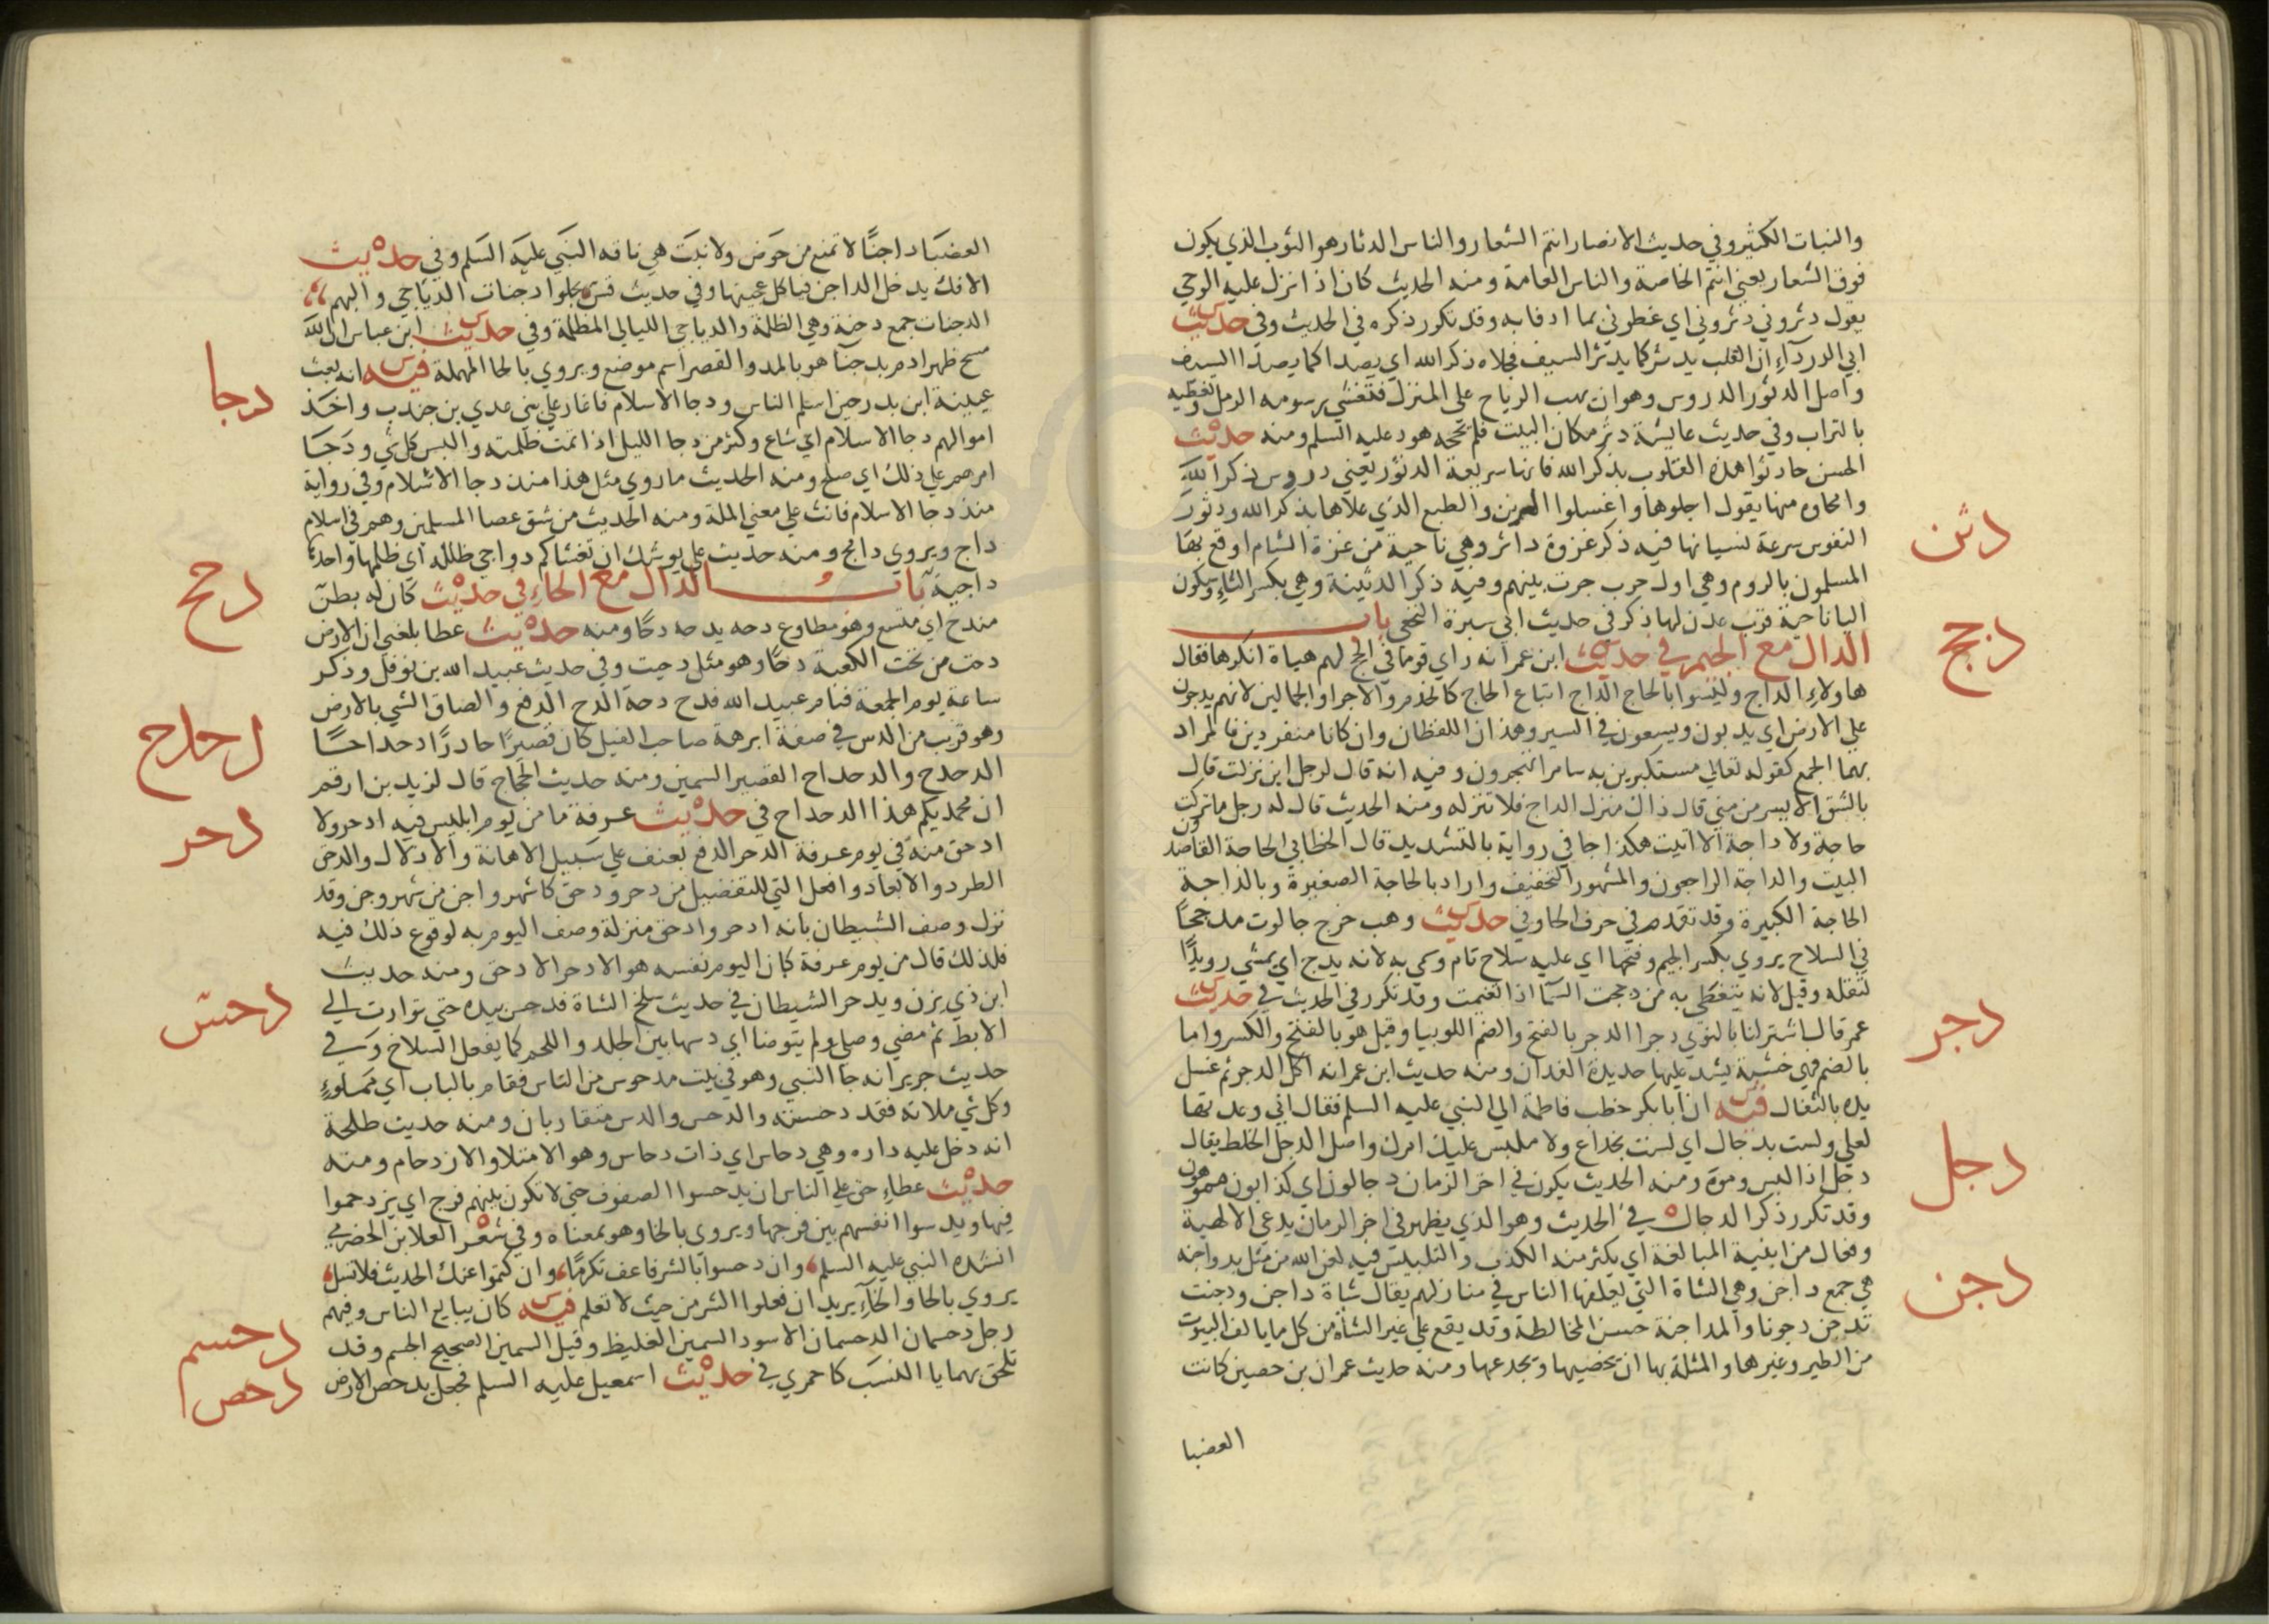 والنبات الكثير وفي حديث الانصار انتم الشعار والناس الدثار هو الثوب الذي يكون
فوق الشعار يعني انتم الخاصة والناس العامة ومنه الحديث كان اذا نزل عليه الوحي
يقول دثروني دثروني اي غطوني بما ادفا به وقد تكرر ذكره في الحديث وفي حديث
ابي الدرداء ان القلب يدثر كما يدثر السيف فجلاه ذكر الله اي يصدا كما يصدا السيف
واصل الدثور الدروس وهو ان تهب الرياح على المنزل فتغشي رسومه الرمل وتغطيه
بالتراب وفي حديث عايشة دثر مكان البيت فلم يحجه هود عليه السلم ومنه حديث
الحسن حادثوا هذه القلوب بذكر الله فانها سريعة الدثور يعني دروس ذكر الله
وامحاوه منها يقول اجلوها واغسلوا الرين والطبع الذي علاها بذكر الله ودثور
دثن
النفوس سرعة نسيانها فيه ذكر غزوة داثن وهي ناحية من غزة الشام اوقع بها
المسلمون بالروم وهي اول حرب جرت بينهم وفيه ذكر الدثينة وهي بكسر الثاء وسكون
اليا ناحية قرب عدن لها ذكر في حديث ابي سبرة النخعي باب
دجج
الدال مع الجيم في حديث ابن عمر انه راي قوما في الحج لهم هياة انكرها فقال
هاولاء الداج وليسوا بالحاج الداج اتباع الحاج كالخدم والاجرا والجمالين لانهم يدجون
على الارض اي يدبون ويسعون في السير وهذان اللفظان وان كانا منفردين فالمراد
بهما الجمع كقوله تعالي مستكبرين به سامرا تهجرون وفيه انه قال لرجل اين نزلت قال
بالشق الايسر من مني قال ذاك منزل الداج فلا تنزله ومنه الحديث قال له رجل ما تركت
حاجة ولا داجة الا اتيت هكذا جا في رواية بالتشديد قال الخطابي الحاجة القاصدون
البيت والداجة الراجعون والمشهور التخفيف واراد بالحاجة الصغيرة وبالداجة
الحاجة الكبيرة وقد تقدم في حرف الحا وفي حديث وهب خرج جالوت مدججا
في السلاح يروي بكسر الجيم وفتحها اي عليه سلاح تام وسمي به لانه يدج اي يمشي رويدا
لثقله وقيل لانه يتغطى به من دججت السما اذا تغيمت وقد تكرر في الحديث في حديث
دجر
عمر قال اشتر لنا بالنوي دجرا الدجر بالفتح والضم اللوبيا وقيل هو بالفتح والكسر واما
بالضم فهي خشبة يشد عليها حديدة الفدان ومنه حديث ابن عمر انه اكل الدجر ثم غسل
يده بالثفال فيه ان ابا بكر خطب فاطمة الى النبي عليه السلم فقال اني وعدتها
دجل
لعلي ولست بدجال اي لست بخداع ولا ملبس عليك امرك واصل الدجل الخلط يقال
دجل اذا لبس وموه ومنه الحديث يكون في اخر الزمان دجالون اي كذابون مموهون
وقد تكرر ذكر الدجال في الحديث وهو الذي يظهر في اخر الزمان يدعي الالهية
وفعال من ابنية المبالغة اي يكثر منه الكذب والتلبيس فيه لعن الله من مثل بدواجنه
دجن
هي جمع داجن وهي الشاة التي يعلفها الناس في منازلهم يقال شاة داجن ودجنت
تدجن دجونا والمداجنة حسن المخالطة وقد يقع على غير الشاة من كل ما يالف البيوت
من الطير وغيرها والمثلة بها ان يخصيها ويجدعها ومنه حديث عمران بن حصين كانت
العضبا
العضبا داجنا لا تمنع من حوض ولا نبت هي ناقة النبي عليه السلم وفي حديث
الافك يدخل الداجن فياكل عجينها وفي حديث قس يجلوا دجنات الدياجي والبهم
الدجنات جمع دجنة وهي الظلمة والدياجي الليالي المظلمة وفي حديث ابن عباس ان الله
مسح ظهر ادم بدجنا هو بالمد والقصر اسم موضع ويروي بالحا المهملة فيه انه بعث
دجا
عيينة ابن بدر حين اسلم الناس ودجا الاسلام فاغار على بني عدي بن جندب واخذ
اموالهم دجا الاسلام اي شاع وكثر من دجا الليل اذا تمت ظلمته والبس كل شي ودجا
امرهم علي ذلك اي صلح ومنه الحديث ما روي مثل هذا منذ دجا الاسلام وفي رواية
منذ دجا الاسلام فانث على معني الملة ومنه الحديث من شق عصا المسلمين وهم في اسلام
داج ويروي دامج ومنه حديث علي يوشك ان تغشاكم دواجي ظلله اي ظلمها واحدتها
دحح
داجية باب الدال مع الحاء في حديث كان له بطن
مندح اي متسع وهو مطاوع دحه يدحه دحا ومنه حديث عطا بلغني ان الارض
دحت من تحت الكعبة دحا وهو مثل دحيت وفي حديث عبيد الله بن نوفل وذكر
ساعة يوم الجمعة فنام عبيد الله فدح دحة الدح الدفع والصاق الشي بالارض
دحدح
وهو قريب من الدس في صفة ابرهة صاحب الفيل كان قصيرا حادرا دحداحا
الدحدح والدحداح القصير السمين ومنه حديث الحجاج قال لزيد بن ارقم
ان محمديكم هذا الدحداح في حديث عرفة ما من يوم ابليس فيه ادحر ولا
دحر
ادحق منه في يوم عرفة الدحر الدفع بعنف على سبيل الاهانة والاذلال والدحق
الطرد والابعاد وافعل التي للتفضيل من دحر ودحق كاشهر واجن من شهر وجن وقد
نزل وصف الشيطان بانه ادحر وادحق منزلة وصف اليوم به لوقوع ذلك فيه
فلذلك قال من يوم عرفة كان اليوم نفسه هو الادحر الادحق ومنه حديث
دحس
ابن ذي يزن ويدحر الشيطان في حديث سلخ الشاة فدحس بيده حتى توارت الي
الابط ثم مضي وصلي ولم يتوضا اي دسها بين الجلد واللحم كما يفعل السلاخ وفي
حديث جرير انه جا النبي وهو في بيت مدحوس من الناس فقام بالباب اي مملوء
وكل شي ملاته فقد دحسته والدحس والدس متقاربان ومنه حديث طلحة
انه دخل عليه داره وهي دحاس اي ذات دحاس وهو الامتلا والازدحام ومنه
حديث عطاء حق على الناس ان يدحسوا الصفوف حتى لا تكون بينهم فرج اي يزدحموا
فيها ويدسوا انفسهم بين فرجها ويروى بالخا وهو بمعناه وفي شعر العلا بن الحضرمي
انشده النبي عليه السلم وان دحسوا بالشر فاعف تكرما وان كتموا عنك الحديث فلا تسل
يروي بالحا والخاء يريد ان فعلوا الشر من حيث لا تعلم فيه كان يبايع الناس وفيهم
دحسم
رجل دحسمان الدحسمان الاسود السمين الغليظ وقيل السمين الصحيح الجسم وقد
دحص
تلحق بهما يا النسب كاحمري في حديث اسمعيل عليه السلم فجعل يدحص الارض